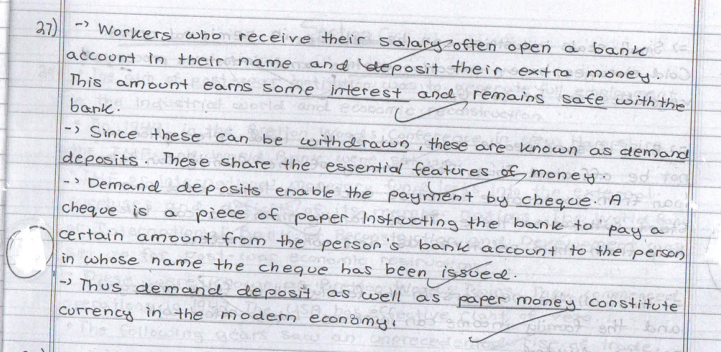 27) -> Workers who receive their salary often open a bank
account in their name and deposit their extra money.
This amount earns some interest and remains safe with the
bank.
-> Since these can be withdrawn, these are known as demand
deposits. These share the essential features of money.
-> Demand deposits enable the payment by cheque. A
cheque is a piece of paper Instructing the bank to pay a
certain amount from the person's bank account to the person
in whose name the cheque has been issued.
-> Thus demand deposit as well as paper money constitute
currency in the modern economy.